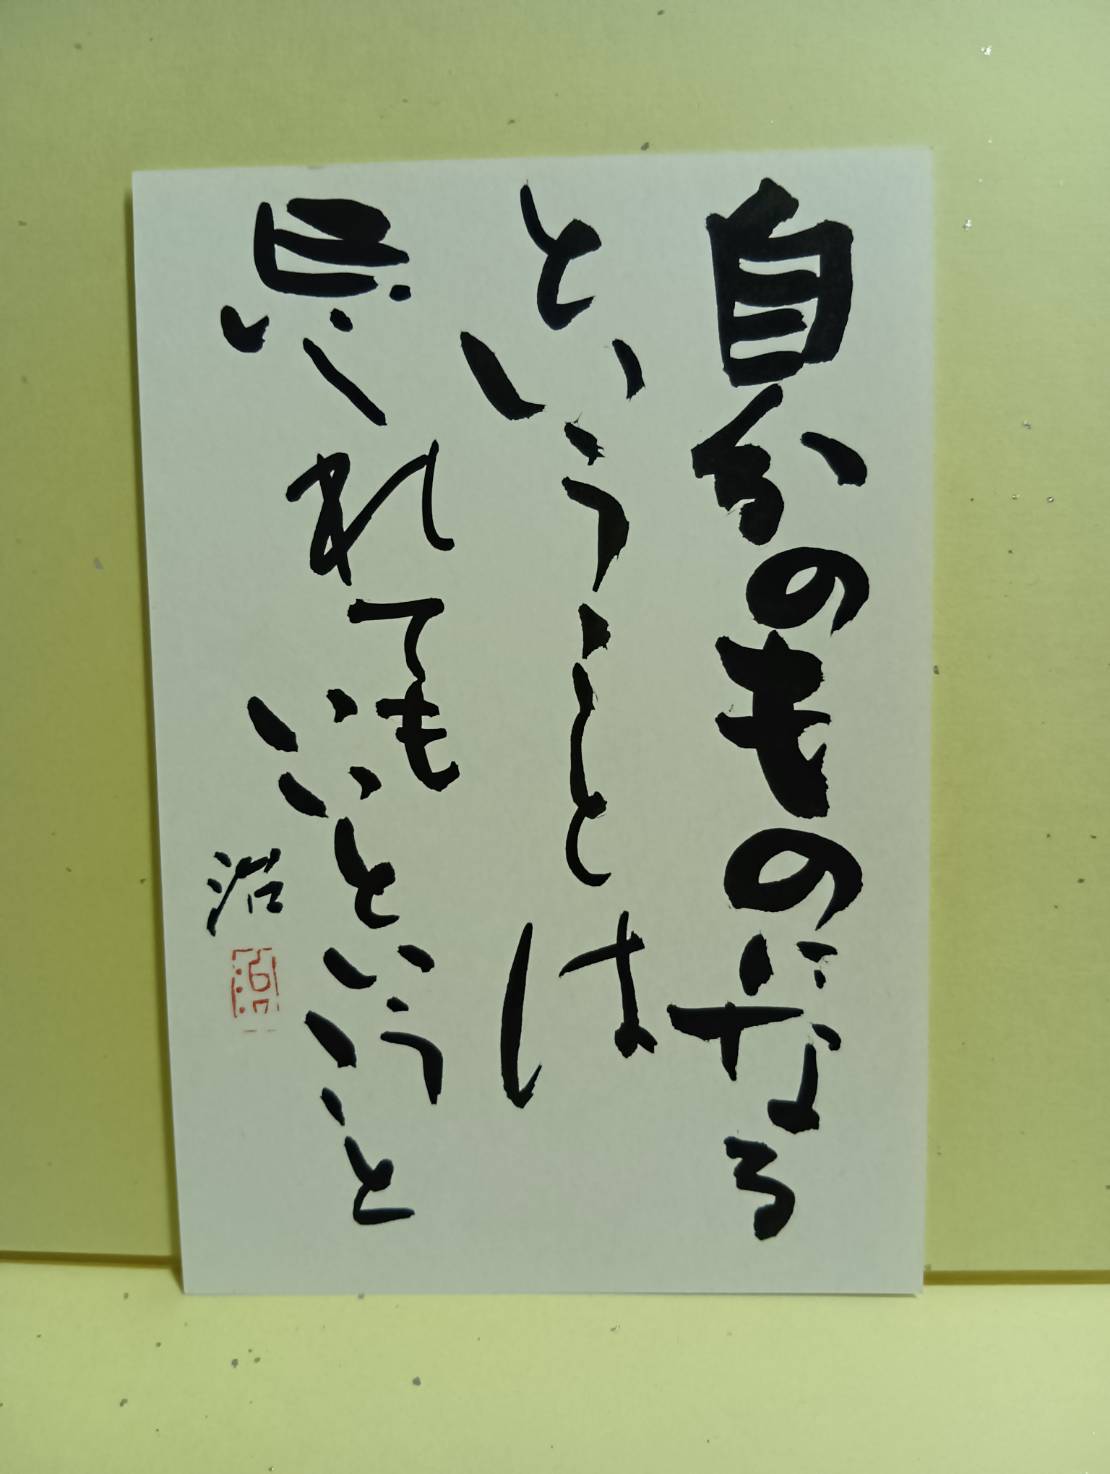 自分のものになる
ということは
忘れても
いいということ
治
治